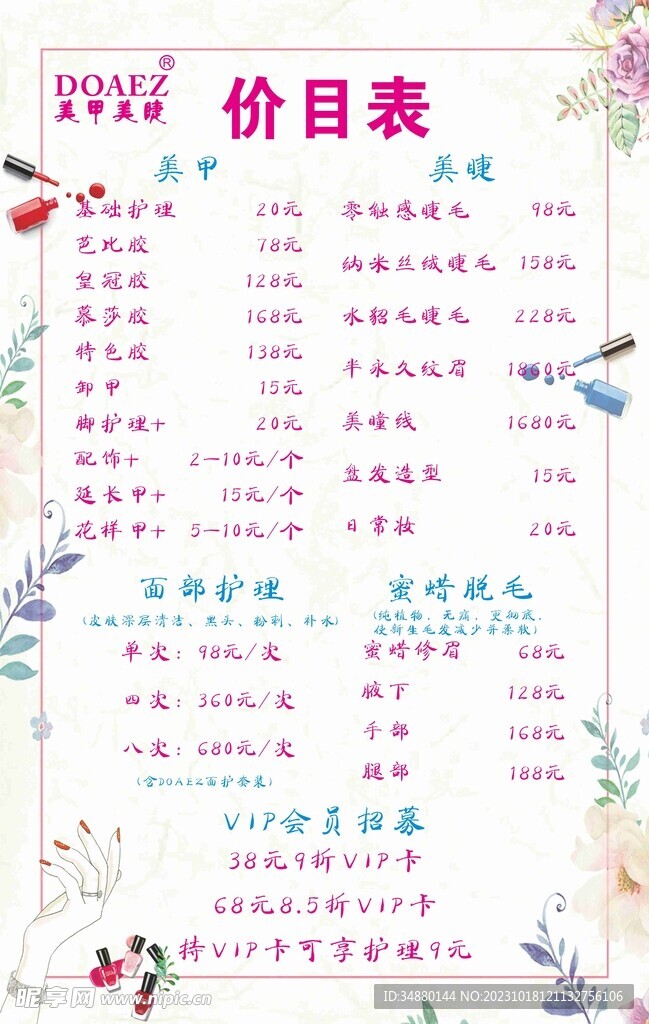 DOAEZ®
美甲美睫
价目表
美甲
基础护理 20元
芭比胶 78元
皇冠胶 128元
慕莎胶 168元
特色胶 138元
卸甲 15元
脚护理+ 20元
配饰+ 2—10元/个
延长甲+ 15元/个
花样甲+ 5—10元/个
美睫
零触感睫毛 98元
纳米丝绒睫毛 158元
水貂毛睫毛 228元
半永久纹眉 1860元
美瞳线 1680元
盘发造型 15元
日常妆 20元
面部护理
(皮肤深层清洁、黑头、粉刺、补水)
单次：98元/次
四次：360元/次
八次：680元/次
(含DOAEZ面护套装)
蜜蜡脱毛
(纯植物，无痛，更彻底，
使新生毛发减少并柔软)
蜜蜡修眉 68元
腋下 128元
手部 168元
腿部 188元
VIP会员招募
38元9折VIP卡
68元8.5折VIP卡
持VIP卡可享护理9元
昵享网 www.nipic.cn
ID:34880144 NO:20231018121132756106